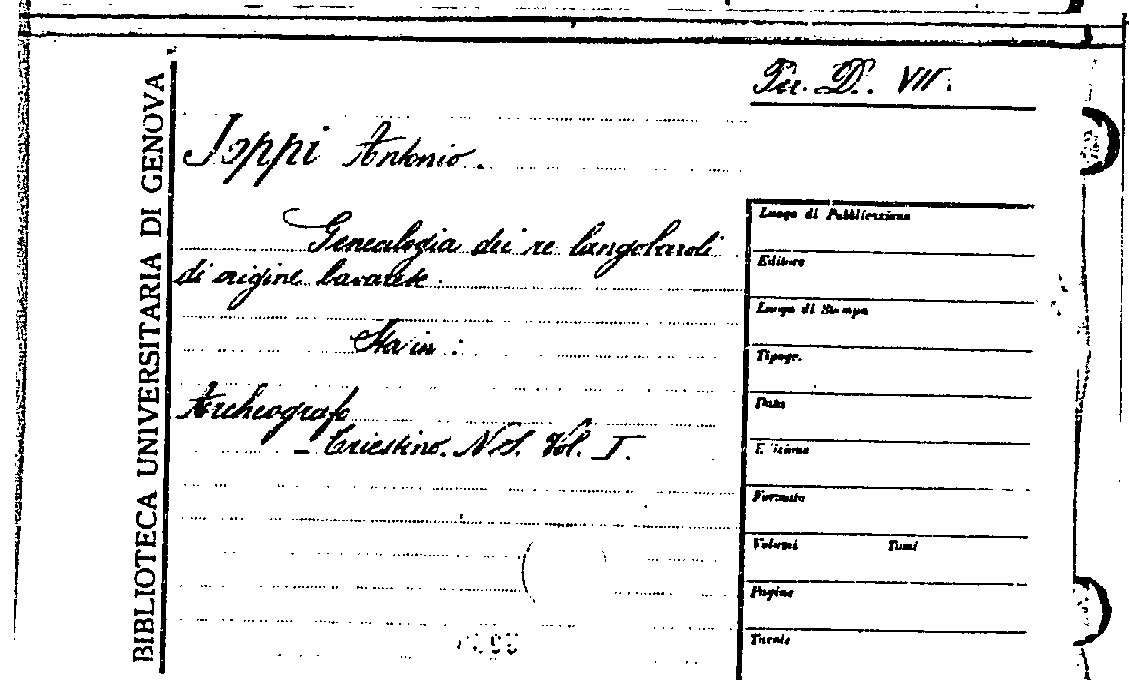 BIBLIOTECA UNIVERSITARIA DI GENOVA
Per. D. VII.
Joppi Antonio.
Genealogia dei re langobardi
di origine bavarese.
Sta in:
Archeografo
Triestino. N.S. Vol. I.
Luogo di Pubblicazione
Editore
Luogo di Stampa
Tipogr.
Data
Edizione
Formato
Volumi Tomi
Pagine
Tavole